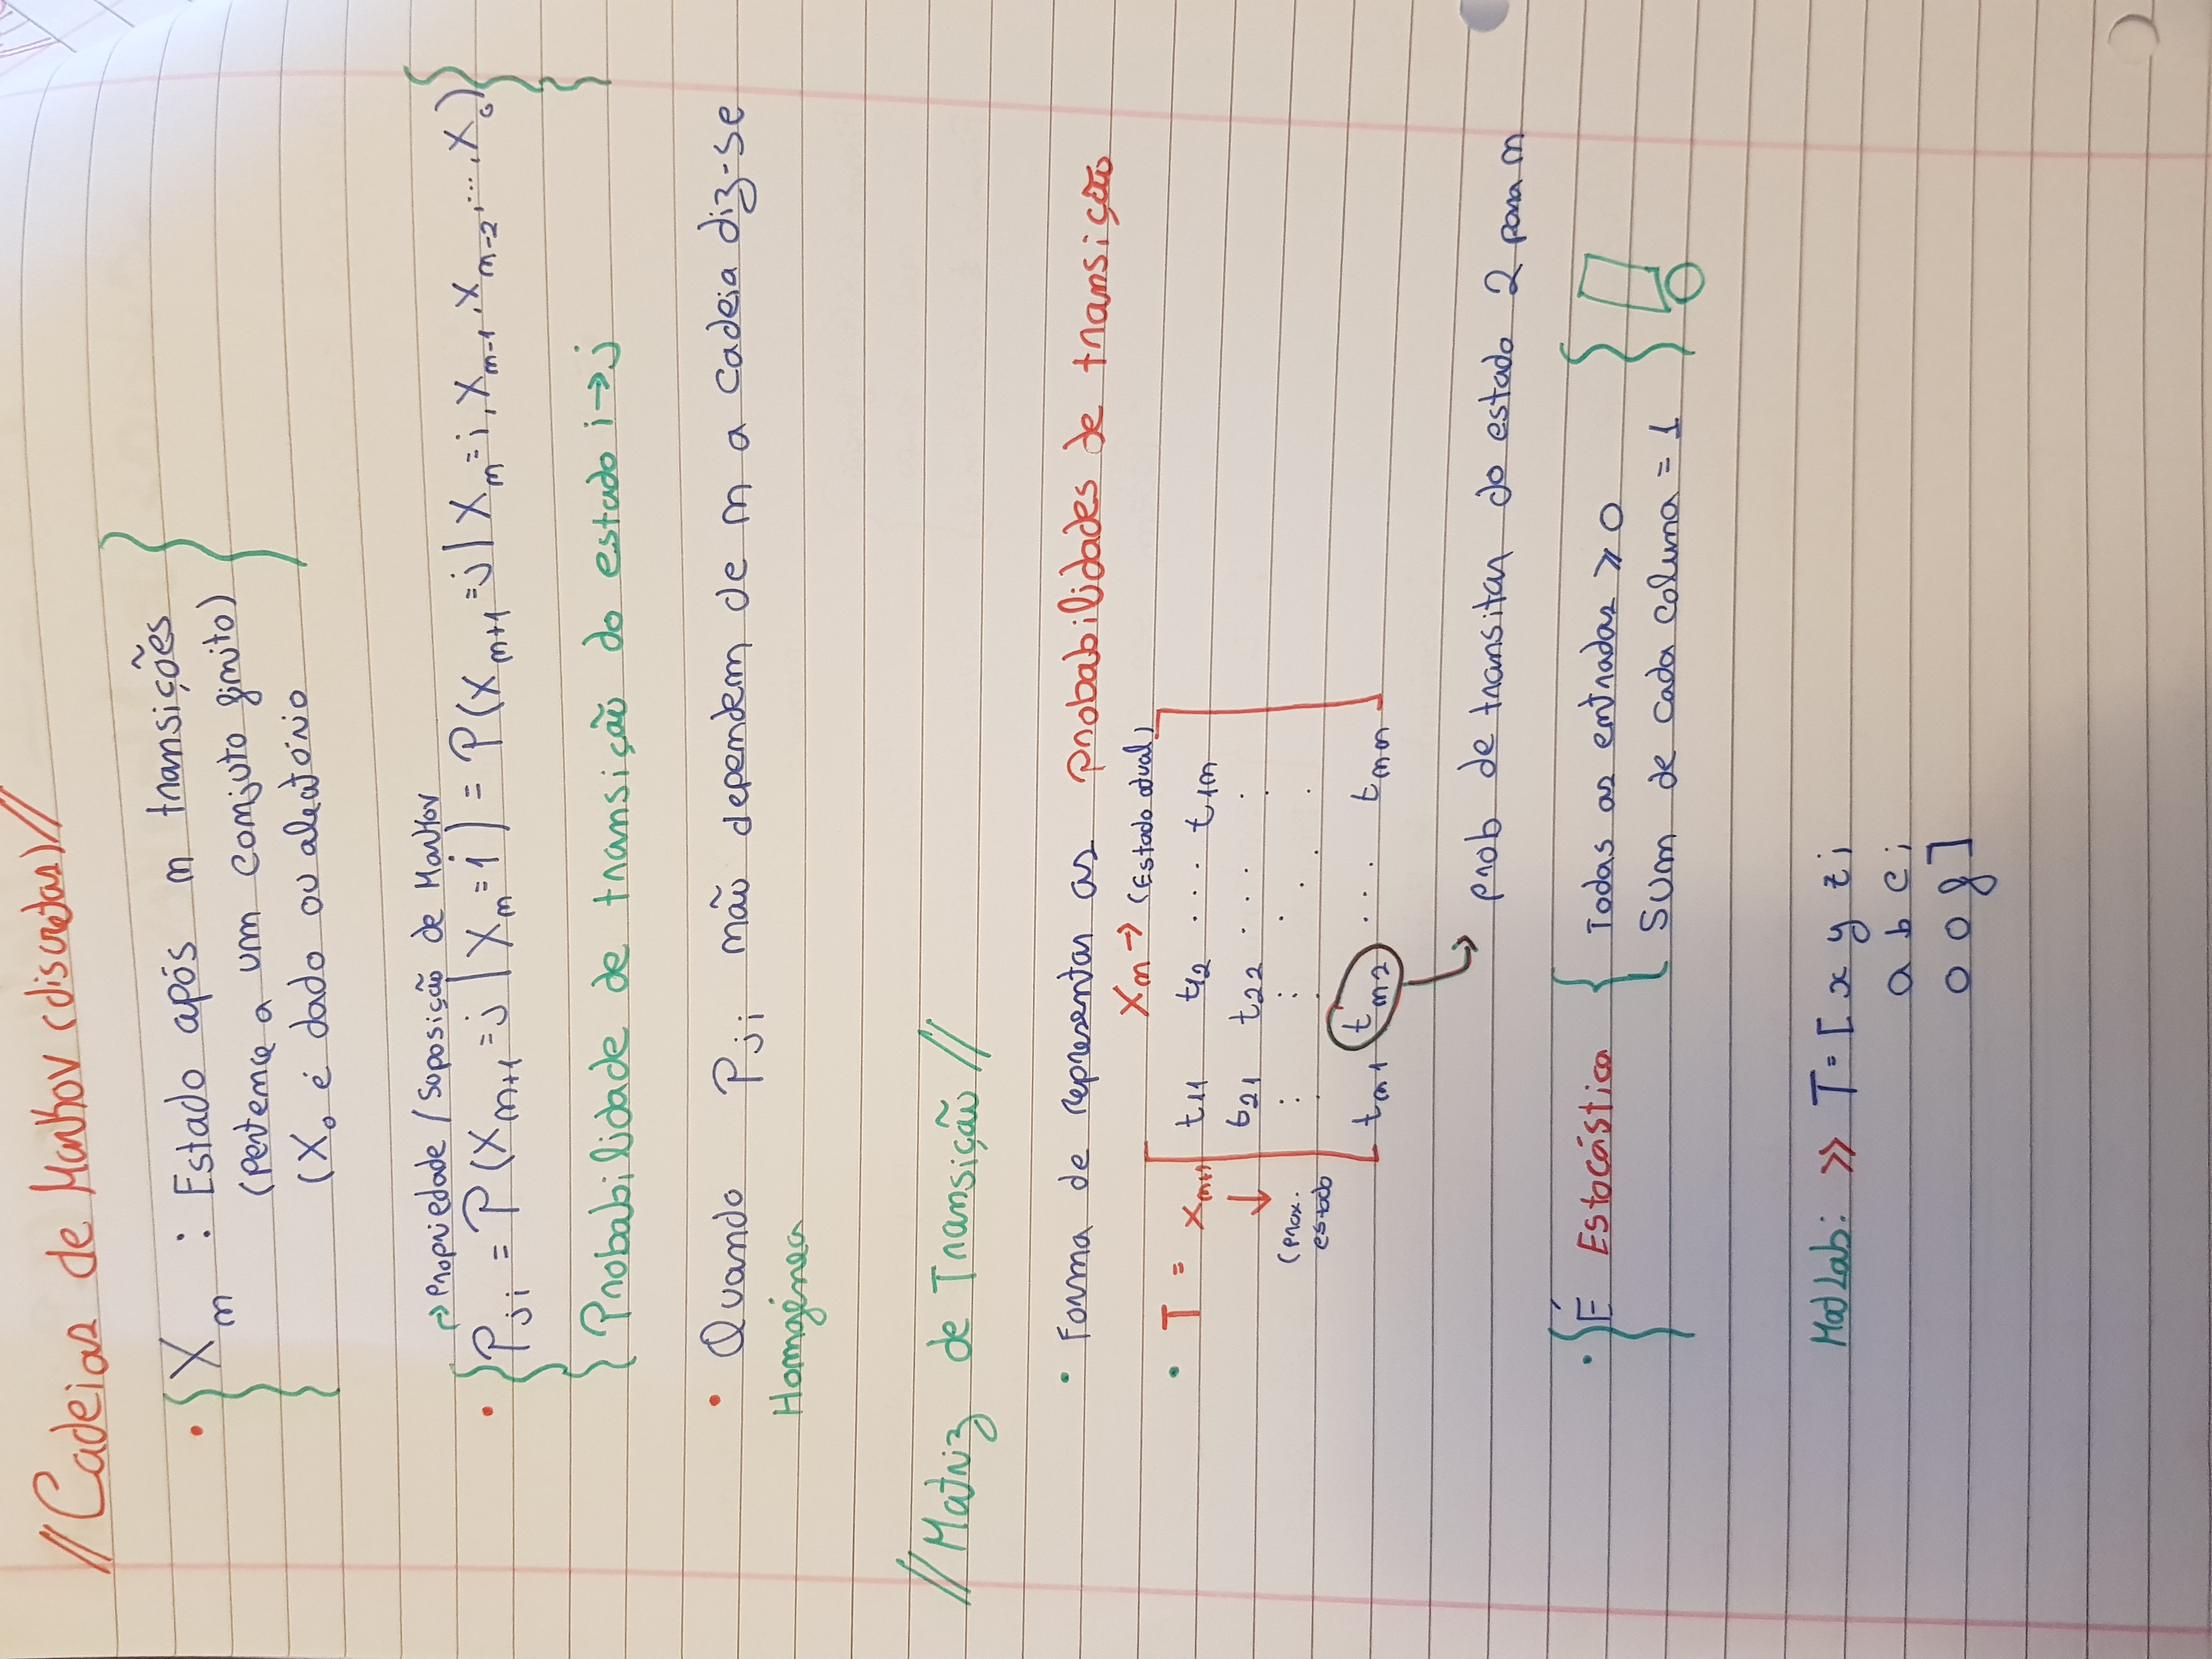 //Cadeias de Markov (discretas)//
• { Xn : Estado após n transições }
(Pertence a um conjuto finito)
(X0 é dado ou aleatório
↱ Propriedade / Soposição de Markov
• { Pji = P(Xn+1 = j | Xn = i) = P(Xn+1 = j | Xn = i, Xn-1, Xn-2, ..., X0) }
{ Probabilidade de transição do estado i → j }
• Quando Pji não dependem de n a cadeia diz-se
Homgénea
//Matriz de Transição//
• Forma de representar as probabilidades de transição
Xn → (Estado atual)
• T = Xn+1 [ t11 t12 ... t1n ]
↓ t21 t22 ... .
(prox. : : . .
estado . . . .
tn1 tn2 ... tnn
↳ prob de transitar do estado 2 para n
• { É Estocástica { Todas as entradas ⩾ 0 }
Sum de cada coluna = 1
MatLab: >> T = [ x y z ;
a b c ;
0 0 f ]